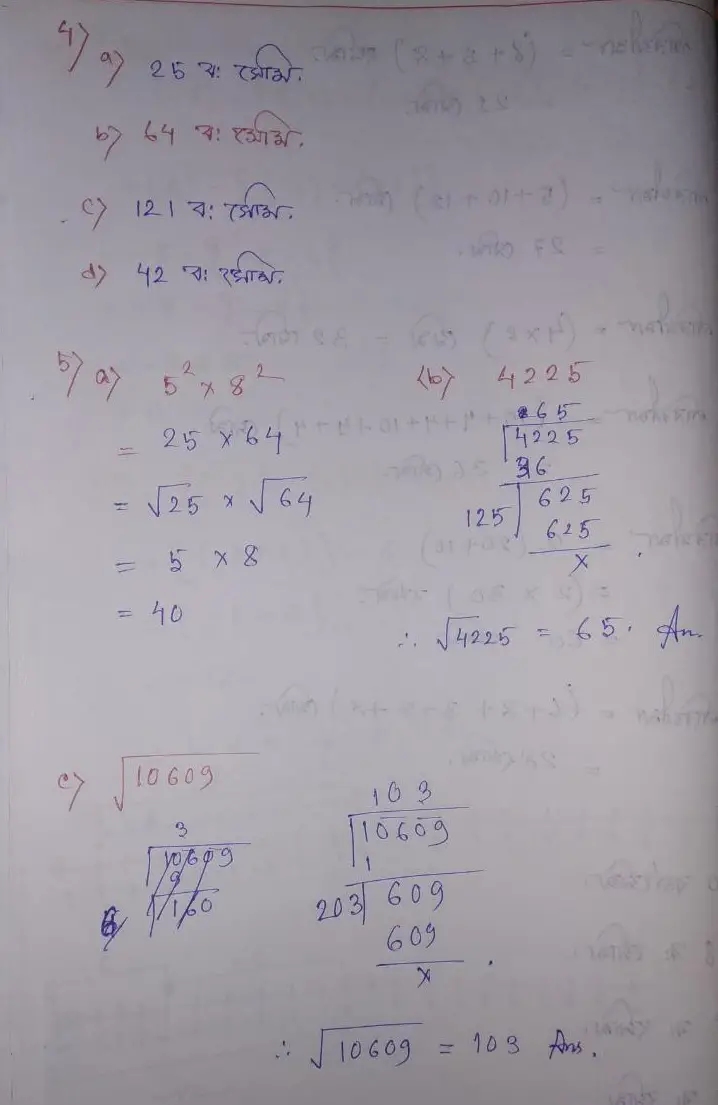 4) a) 25 বঃ সেমি.
b) 64 বঃ সেমি.
c) 121 বঃ সেমি.
d) 42 বঃ সেমি.
5) a) 5² × 8²
= 25 × 64
= √25 × √64
= 5 × 8
= 40
(b) 4225
65
4225
36
125 625
625
×
∴ √4225 = 65. An.
c) √10609
3
10609
9
6 160
103
10609
1
203 609
609
×
∴ √10609 = 103 Ans.